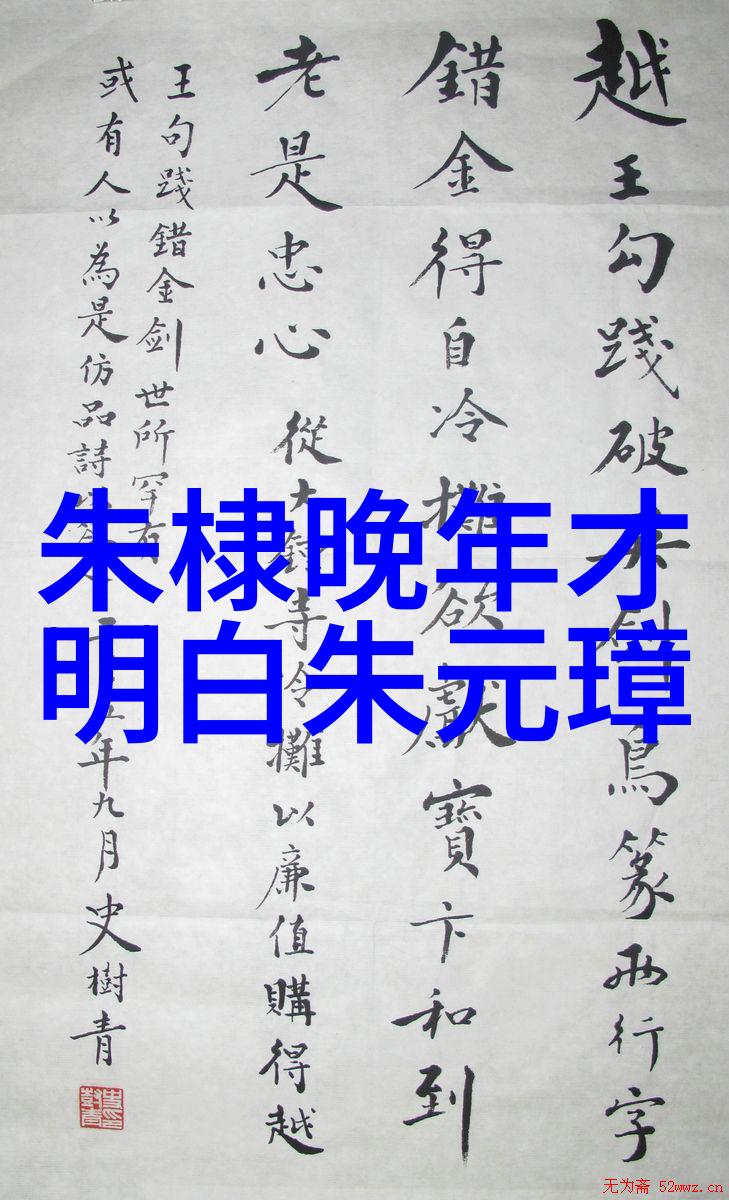 越王勾踐破吳劍鳥篆兩行字
錯金得自冷攤欲獻寶卞和到
老是忠心 從大鐘寺冷攤以廉值購得越
王句踐錯金劍世所罕有
或有人以為是仿品詩以 年九月史樹青
朱棣晚年才
明白朱元璋
无为斋 52wwz.cn